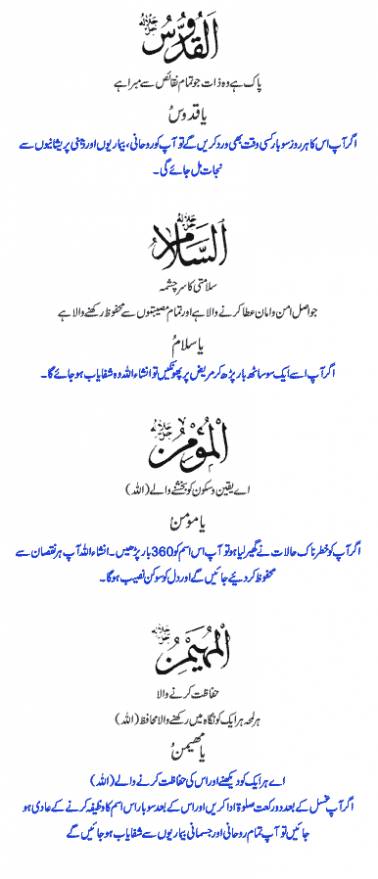 اَلْقُدُّوْسُ جل جلالہ
پاک ہے وہ ذات جو تمام نقائص سے مبرا ہے
یا قدوسُ
اگر آپ اس کا ہر روز سو بار کسی وقت بھی ورد کریں گے تو آپ کو روحانی، بیماریوں اور ذہنی پریشانیوں سے
نجات مل جائے گی۔
اَلسَّلَامُ جل جلالہ
سلامتی کا سرچشمہ
جو اصل امن وامان عطا کرنے والا ہے اور تمام مصیبتوں سے محفوظ رکھنے والا ہے
یا سلامُ
اگر آپ اسے ایک سو ساٹھ بار پڑھ کر مریض پر پھونکیں تو انشاء اللہ وہ شفایاب ہو جائے گا۔
اَلْمُؤْمِنُ جل جلالہ
اے یقین و سکون کو بخشنے والے (اللہ)
یا مومنُ
اگر آپ کو خطرناک حالات نے گھیر لیا ہو تو آپ اس اسم کو 360 بار پڑھیں۔ انشاء اللہ آپ ہر نقصان سے
محفوظ کر دیئے جائیں گے اور دل کو سوکن نصیب ہوگا۔
اَلْمُهَيْمِنُ جل جلالہ
حفاظت کرنے والا
ہر لمحہ ہر ایک کو نگاہ میں رکھنے والا محافظ (اللہ)
یا مھیمنُ
اے ہر ایک کو دیکھنے اور اس کی حفاظت کرنے والے (اللہ)
اگر آپ غسل کے بعد دو رکعت صلوۃ ادا کریں اور اس کے بعد سو بار اس اسم کا وظیفہ کرنے کے عادی ہو
جائیں تو آپ تمام روحانی اور جسمانی بیماریوں سے شفایاب ہو جائیں گے